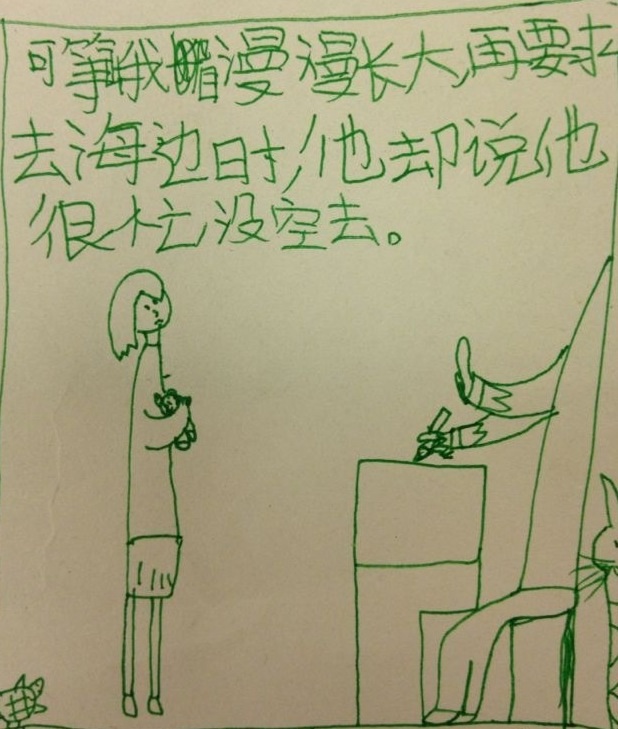 可等我漫漫长大,再要求
去海边时,他却说他
很忙没空去。